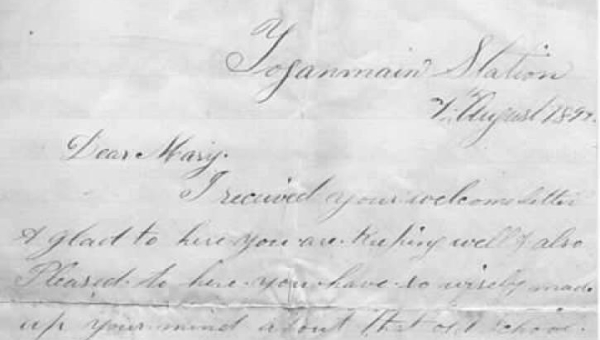 Toganmain Station
August 189
Dear Mary.
I received your welcome letter
& glad to here you are keeping well & also
Pleased to here you have so wisely made
up your mind about that old school.